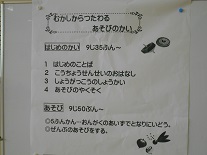 むかしからつたわる
あそびのかい
はじめのかい 9じ35ぷん~
1 はじめのことば
2 こうちょうせんせいのおはなし
3 しょうがっこうのしょうかい
4 あそびのやくそく
あそび 9じ50ぷん~
◎5ふんかん…おんがくのあいずでとなりにいどう。
◎ぜんぶのあそびをする。